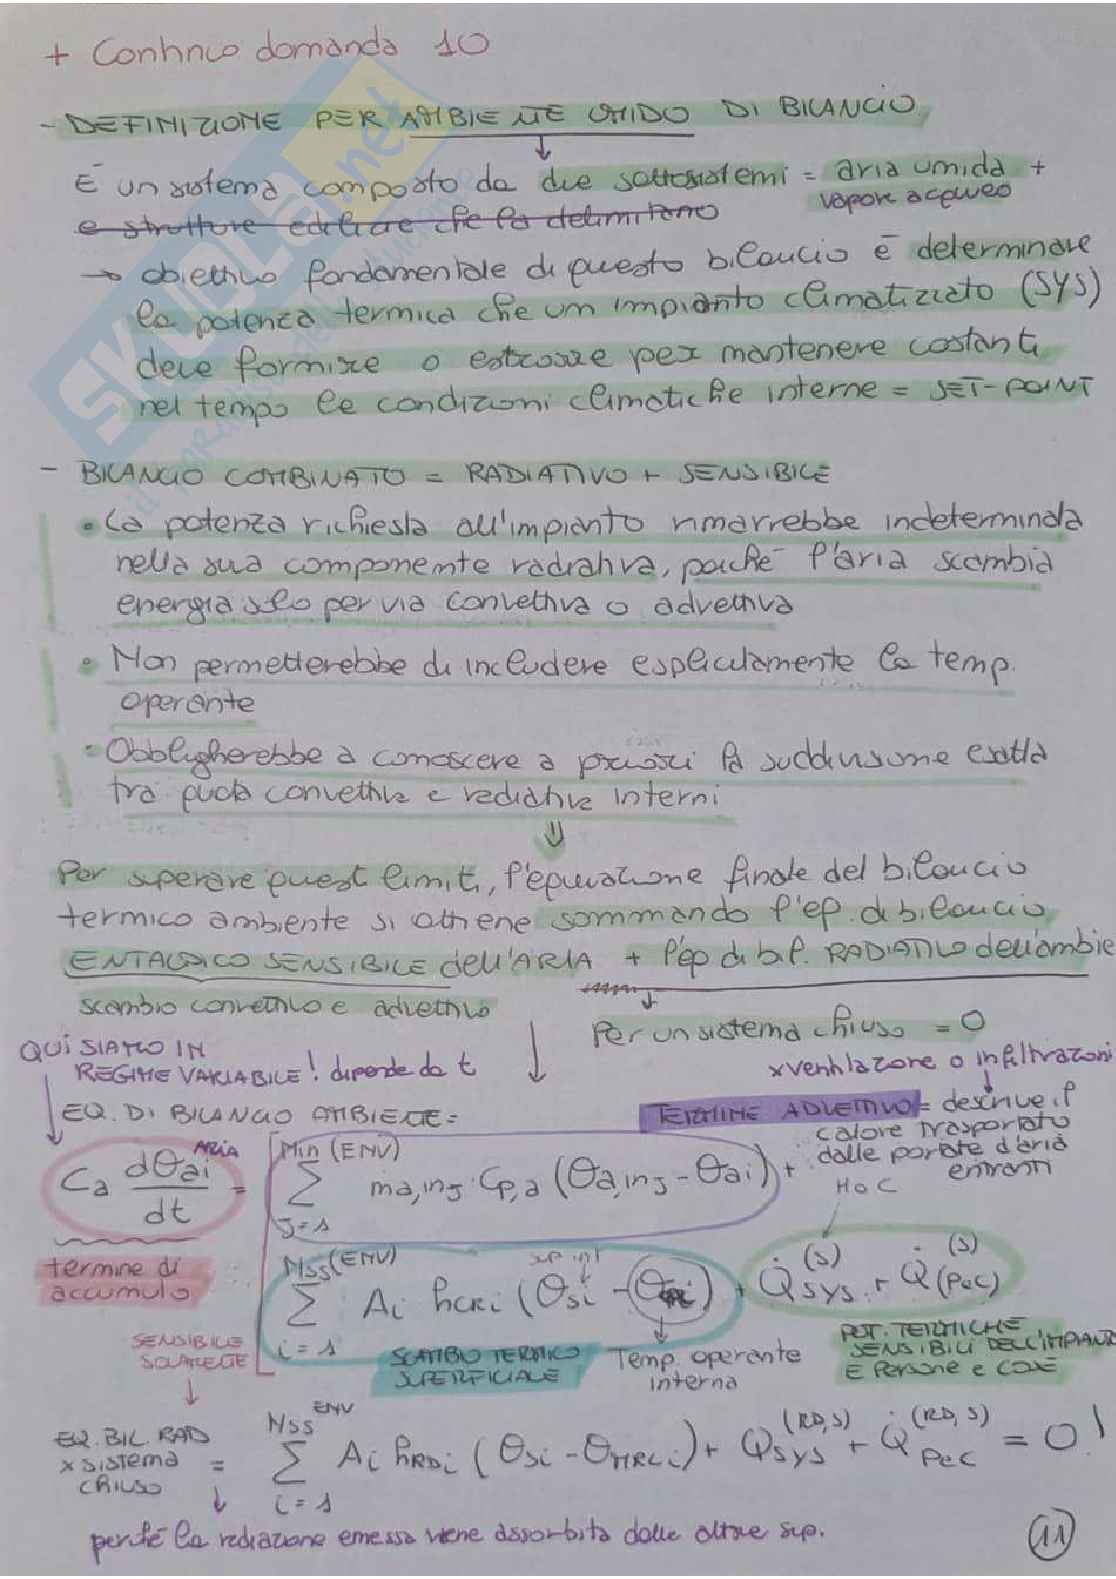 + Continuo domanda 10
- DEFINIZIONE PER AMBIENTE UMIDO DI BILANCIO
È un sistema composto da due sottosistemi = aria umida +
vapore acqueo
e strutture edilizie che la delimitano
→ obiettivo fondamentale di questo bilancio è determinare
la potenza termica che un impianto climatizzato (SYS)
deve fornire o estrarre per mantenere costanti
nel tempo le condizioni climatiche interne = SET-POINT
- BILANCIO COMBINATO = RADIATIVO + SENSIBILE
• La potenza richiesta all'impianto rimarrebbe indeterminata
nella sua componente radiativa, poiché l'aria scambia
energia solo per via convettiva o advettiva
• Non permetterebbe di includere esplicitamente la temp.
operante
• Obbligherebbe a conoscere a priori la suddivisione esatta
tra quota convettiva e radiativa interni
⇓
Per superare questi limiti, l'equazione finale del bilancio
termico ambiente si ottiene sommando l'eq. di bilancio
ENTALPICO SENSIBILE dell'ARIA + l'eq di bil. RADIATIVO dell'ambie
scambio convettivo e advettivo
Per un sistema chiuso = 0
QUI SIAMO IN
REGIME VARIABILE! dipende da t
x ventilazione o infiltrazioni
EQ. DI BILANCIO AMBIENTE =
TERMINE ADVETTIVO = descrive il
calore trasportato
dalle portate d'aria
entranti
Ca dθai/dt = ARIA
Nin (ENV) Σ J=1 ma,inJ · Cp,a (θa,inJ - θai) +
HoC
Nss (ENV) Σ i=1 Ai hcRi (θsi - θ i) + Q̇SYS (S) + Q̇(PeC) (S)
sup int
termine di
accumulo
SENSIBILE
SCAMBIO TERMICO
SUPERFICIALE
Temp. operante
interna
POT. TERMICHE
SENSIBILI DELL'IMPIANTO
E Persone e COSE
EQ. BIL. RAD
x sistema
chiuso
= Nss ENV Σ i=1 Ai hRDi (θsi - θMRLi) + Q̇SYS (RD,S) + Q̇PeC (RD,S) = 0!
perché la radiazione emessa viene assorbita dalle altre sup.
11
SKUOLA.net